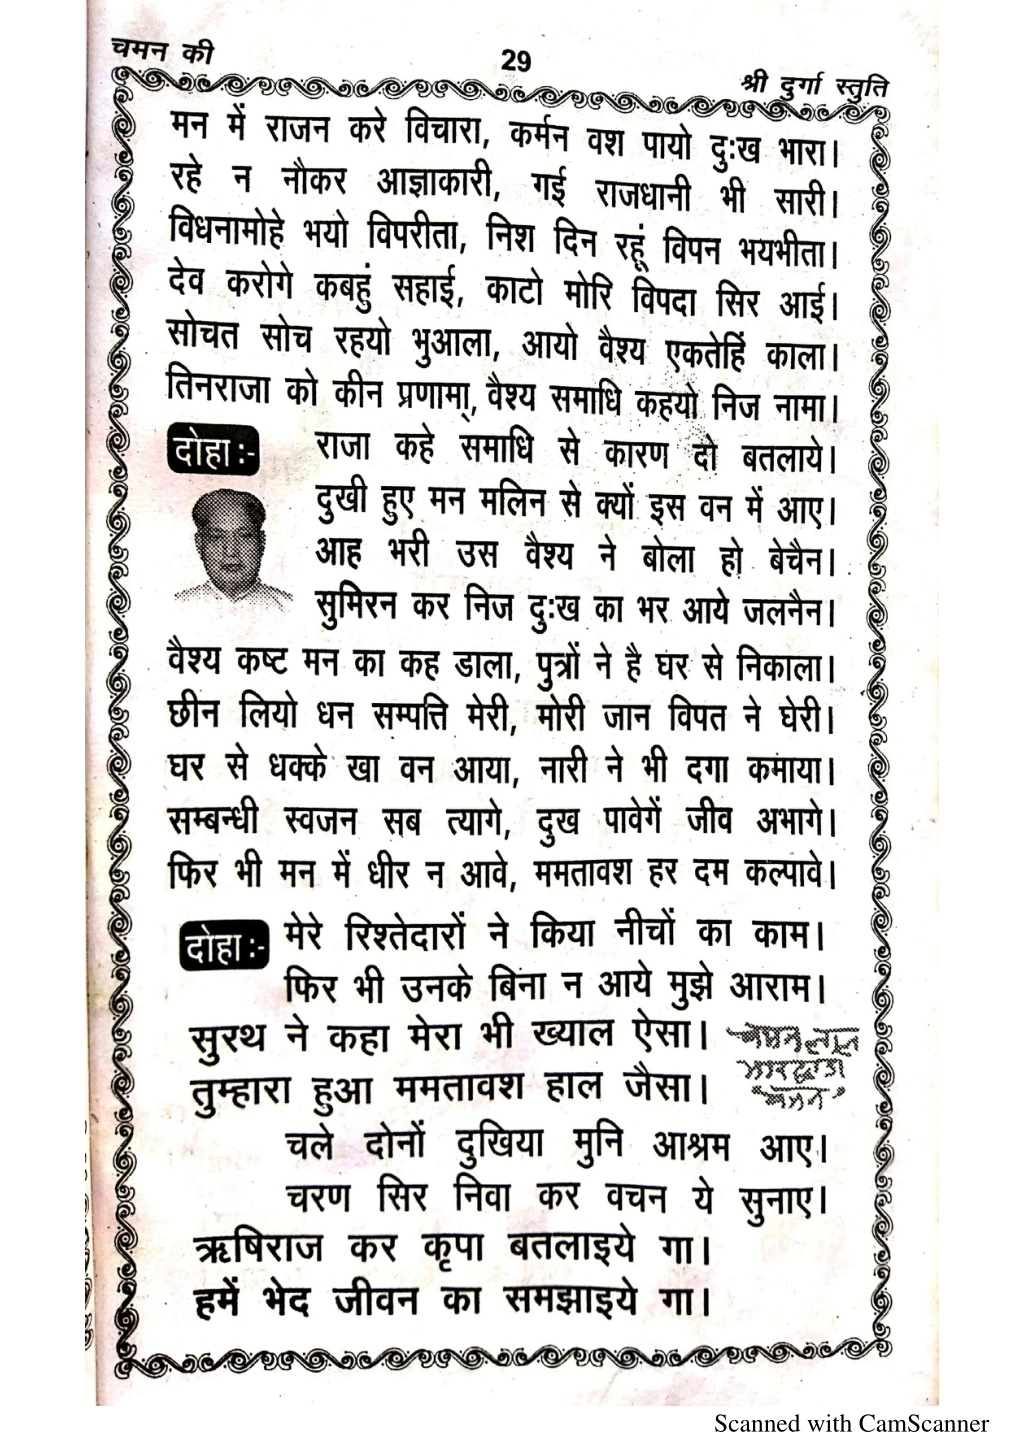 चमन की
29
श्री दुर्गा स्तुति
मन में राजन करे विचारा, कर्मन वश पायो दुःख भारा।
रहे न नौकर आज्ञाकारी, गई राजधानी भी सारी।
विधनामोहे भयो विपरीता, निश दिन रहूं विपन भयभीता।
देव करोगे कबहुं सहाई, काटो मोरि विपदा सिर आई।
सोचत सोच रहयो भुआला, आयो वैश्य एकतेहिं काला।
तिनराजा को कीन प्रणामा, वैश्य समाधि कहयो निज नामा।
दोहा :- राजा कहे समाधि से कारण दो बतलाये।
दुखी हुए मन मलिन से क्यों इस वन में आए।
आह भरी उस वैश्य ने बोला हो बेचैन।
सुमिरन कर निज दुःख का भर आये जलनैन।
वैश्य कष्ट मन का कह डाला, पुत्रों ने है घर से निकाला।
छीन लियो धन सम्पत्ति मेरी, मोरी जान विपत ने घेरी।
घर से धक्के खा वन आया, नारी ने भी दगा कमाया।
सम्बन्धी स्वजन सब त्यागे, दुख पावेगें जीव अभागे।
फिर भी मन में धीर न आवे, ममतावश हर दम कल्पावे।
दोहा :- मेरे रिश्तेदारों ने किया नीचों का काम।
फिर भी उनके बिना न आये मुझे आराम।
सुरथ ने कहा मेरा भी ख्याल ऐसा।
तुम्हारा हुआ ममतावश हाल जैसा।
चमन लाल
भारद्वाज
"चमन"
चले दोनों दुखिया मुनि आश्रम आए।
चरण सिर निवा कर वचन ये सुनाए।
ऋषिराज कर कृपा बतलाइये गा।
हमें भेद जीवन का समझाइये गा।
Scanned with CamScanner